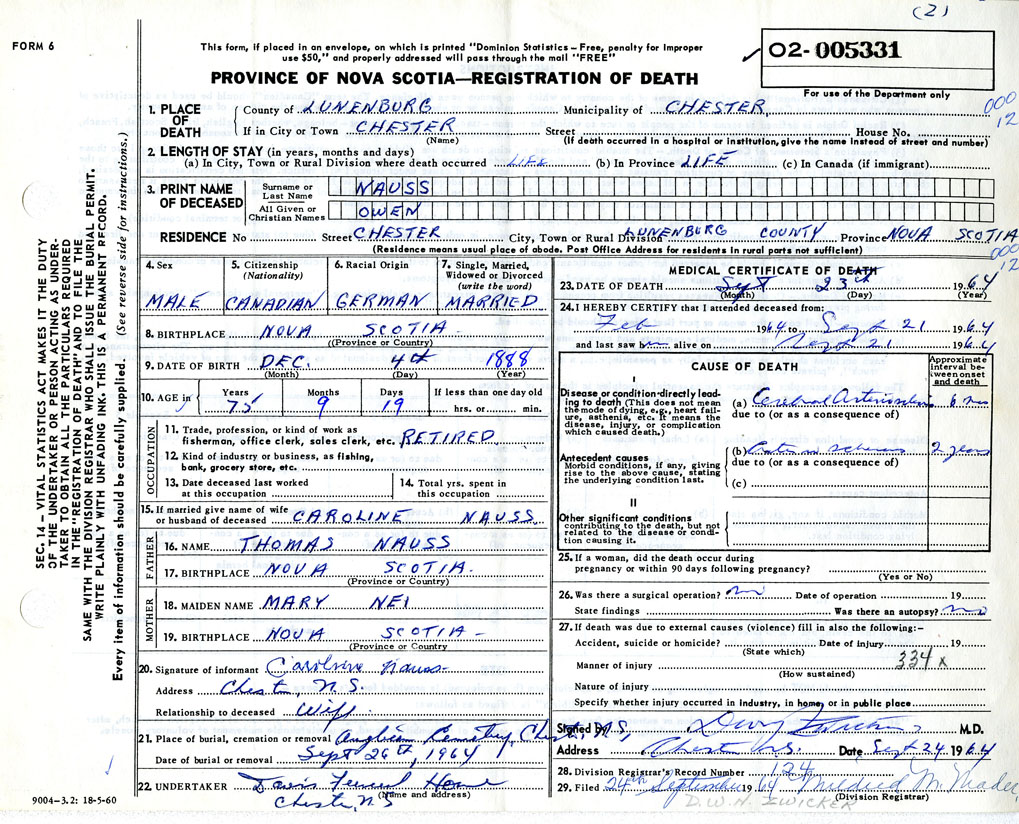 (2)
FORM 6
This form, if placed in an envelope, on which is printed "Dominion Statistics – Free, penalty for improper
use $50," and properly addressed will pass through the mail "FREE"
02-005331
PROVINCE OF NOVA SCOTIA—REGISTRATION OF DEATH
For use of the Department only
000
12
1. PLACE OF DEATH
County of LUNENBURG Municipality of CHESTER
If in City or Town CHESTER Street House No.
(Name) (If death occurred in a hospital or institution, give the name instead of street and number)
2. LENGTH OF STAY (in years, months and days)
(a) In City, Town or Rural Division where death occurred LIFE (b) In Province LIFE (c) In Canada (if immigrant)
3. PRINT NAME OF DECEASED
Surname or Last Name NAUSS
All Given or Christian Names OWEN
RESIDENCE No. Street CHESTER City, Town or Rural Division LUNENBURG COUNTY Province NOVA SCOTIA
(Residence means usual place of abode. Post Office Address for residents in rural parts not sufficient)
000
12
4. Sex MALE
5. Citizenship (Nationality) CANADIAN
6. Racial Origin GERMAN
7. Single, Married, Widowed or Divorced (write the word) MARRIED
8. BIRTHPLACE NOVA SCOTIA
(Province or Country)
9. DATE OF BIRTH DEC. 4th 1888
(Month) (Day) (Year)
10. AGE in Years 75 Months 9 Days 19 If less than one day old hrs. or min.
OCCUPATION
11. Trade, profession, or kind of work as
fisherman, office clerk, sales clerk, etc. RETIRED
12. Kind of industry or business, as fishing,
bank, grocery store, etc.
13. Date deceased last worked
at this occupation
14. Total yrs. spent in
this occupation
15. If married give name of wife
or husband of deceased CAROLINE NAUSS
FATHER
16. NAME THOMAS NAUSS
17. BIRTHPLACE NOVA SCOTIA.
(Province or Country)
MOTHER
18. MAIDEN NAME MARY NEI
19. BIRTHPLACE NOVA SCOTIA –
(Province or Country
20. Signature of informant Caroline Nauss
Address Chester, N.S.
Relationship to deceased Wife
21. Place of burial, cremation or removal Anglican Cemetery, Chester, N.S.
Date of burial or removal Sept 26th, 1964
22. UNDERTAKER Davis Funeral Home
(Name and address)
Chester, N.S
9004–3.2: 18-5-60
MEDICAL CERTIFICATE OF DEATH
23. DATE OF DEATH Sept 23th 1964
(Month) (Day) (Year)
24. I HEREBY CERTIFY that I attended deceased from:
Feb 1964 to Sept 21 1964
and last saw him alive on Sept 21 1964
CAUSE OF DEATH
Approximate interval between onset and death
I
Disease or condition directly leading to death (This does not mean the mode of dying, e.g., heart failure, asthenia, etc. It means the disease, injury, or complication which caused death.)
(a) Cerebral 6 mos
due to (or as a consequence of)
Antecedent causes
Morbid conditions, if any, giving rise to the above cause, stating the underlying condition last.
(b) 2 years
due to (or as a consequence of)
(c)
II
Other significant conditions
contributing to the death, but not related to the disease or condition causing it.
25. If a woman, did the death occur during
pregnancy or within 90 days following pregnancy?
(Yes or No)
26. Was there a surgical operation? no Date of operation 19
State findings Was there an autopsy? no
27. If death was due to external causes (violence) fill in also the following:-
Accident, suicide or homicide? Date of injury 19
(State which)
334 x
Manner of injury
(How sustained)
Nature of injury
Specify whether injury occurred in industry, in home, or in public place
Signed by M.D.
Address Chester N.S. Date Sept 24. 1964
28. Division Registrar's Record Number 124
29. Filed 24th September 1964 Mildred M. Meader
(Division Registrar)
D.W.N. ZWICKER
SEC. 14 – VITAL STATISTICS ACT MAKES IT THE DUTY
OF THE UNDERTAKER OR PERSON ACTING AS UNDER-
TAKER TO OBTAIN ALL THE PARTICULARS REQUIRED
IN THE "REGISTRATION OF DEATH" AND TO FILE THE
SAME WITH THE DIVISION REGISTRAR WHO SHALL ISSUE THE BURIAL PERMIT.
WRITE PLAINLY WITH UNFADING INK. THIS IS A PERMANENT RECORD.
Every item of information should be carefully supplied. (See reverse side for instructions.)